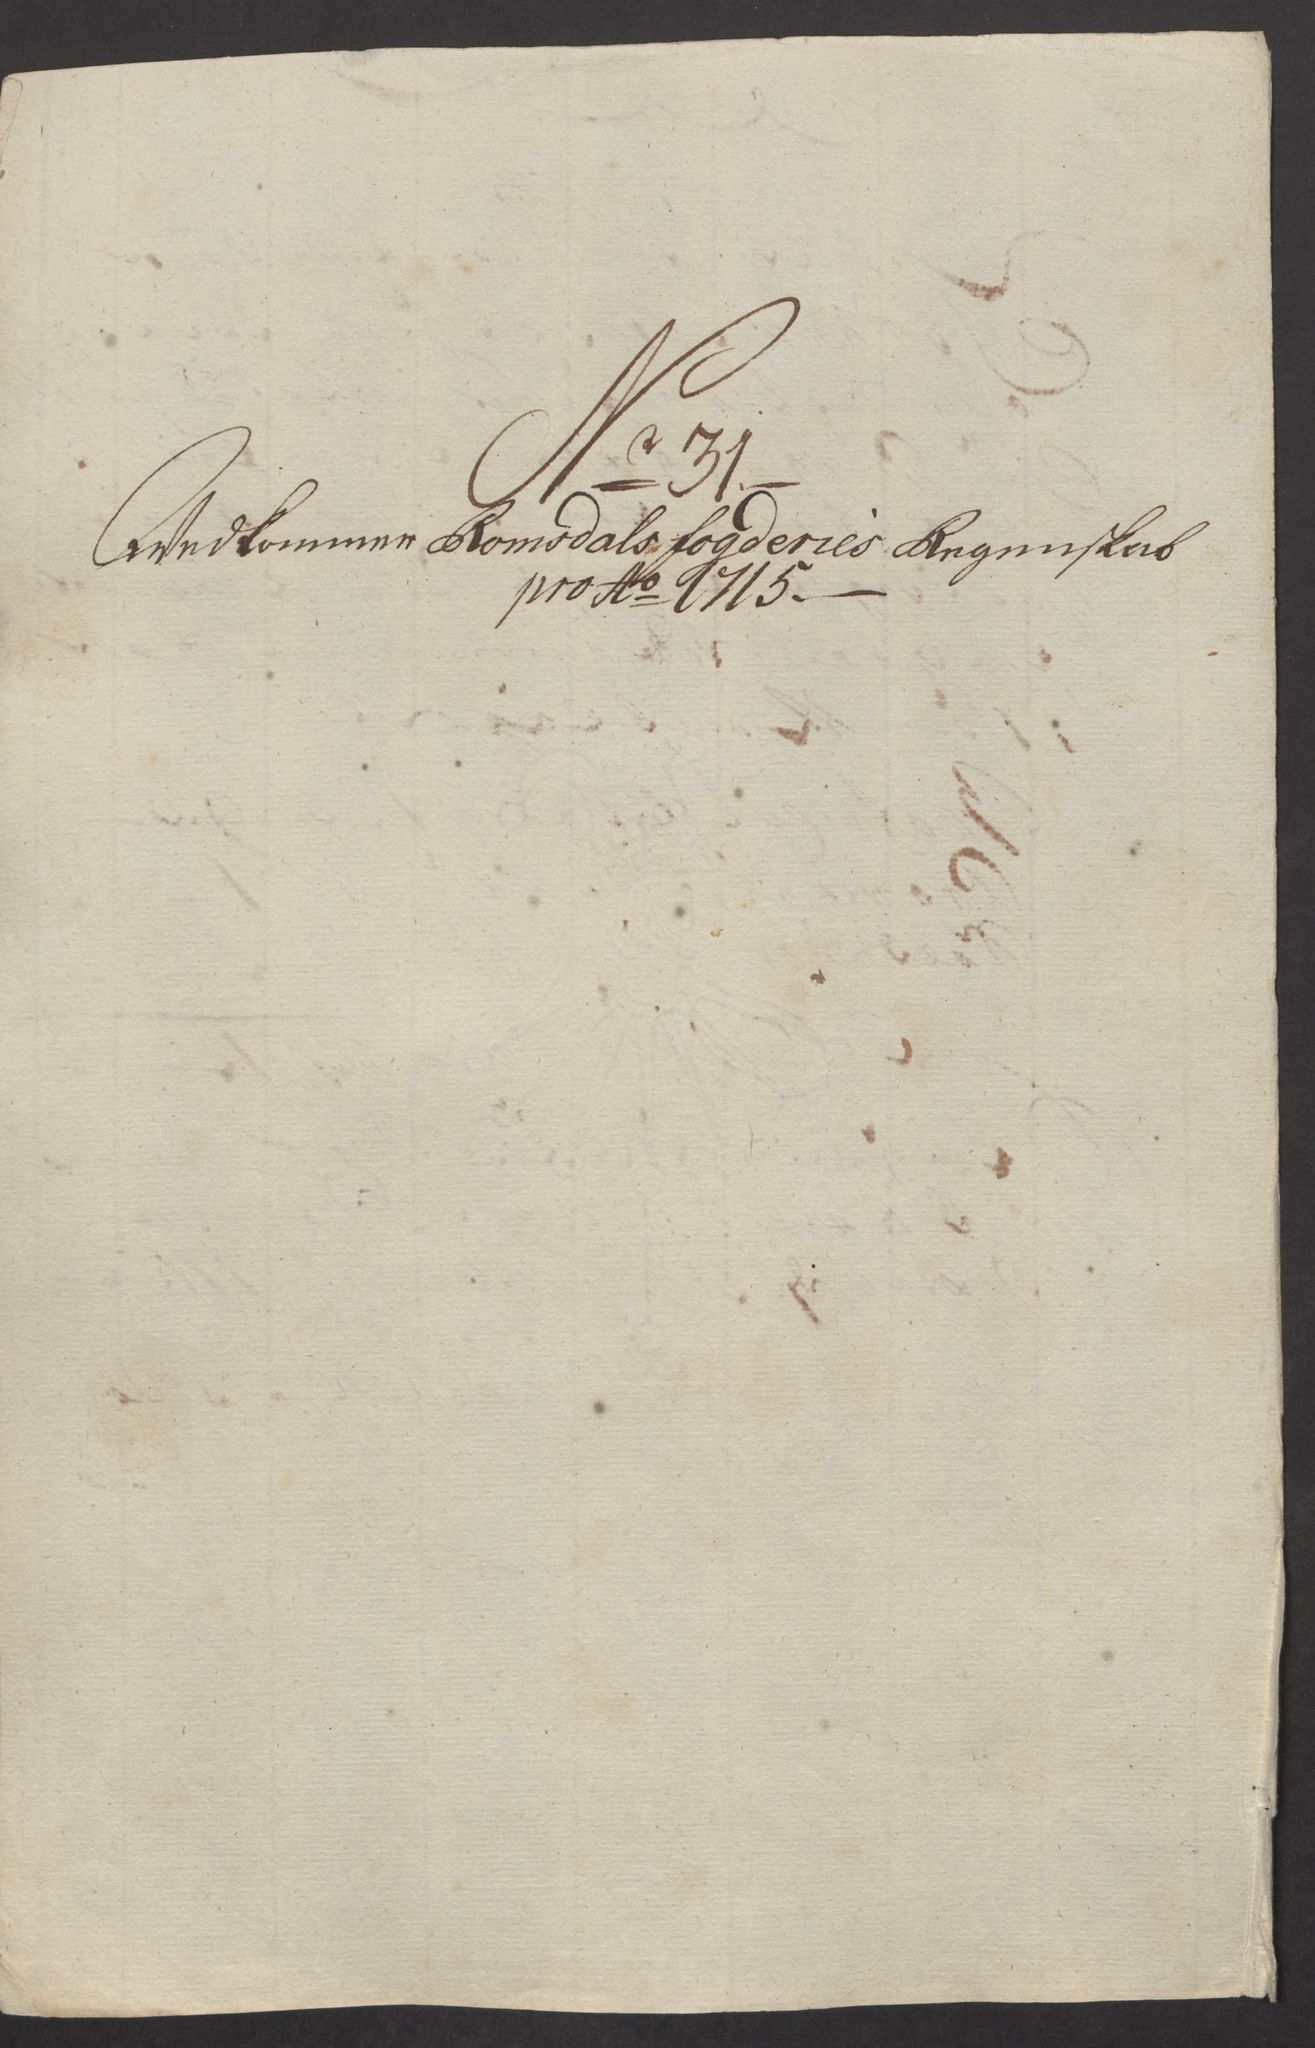 Nr 31.
Vedkommer Romsdals fogderies Regenskab
pro Ao 1715.